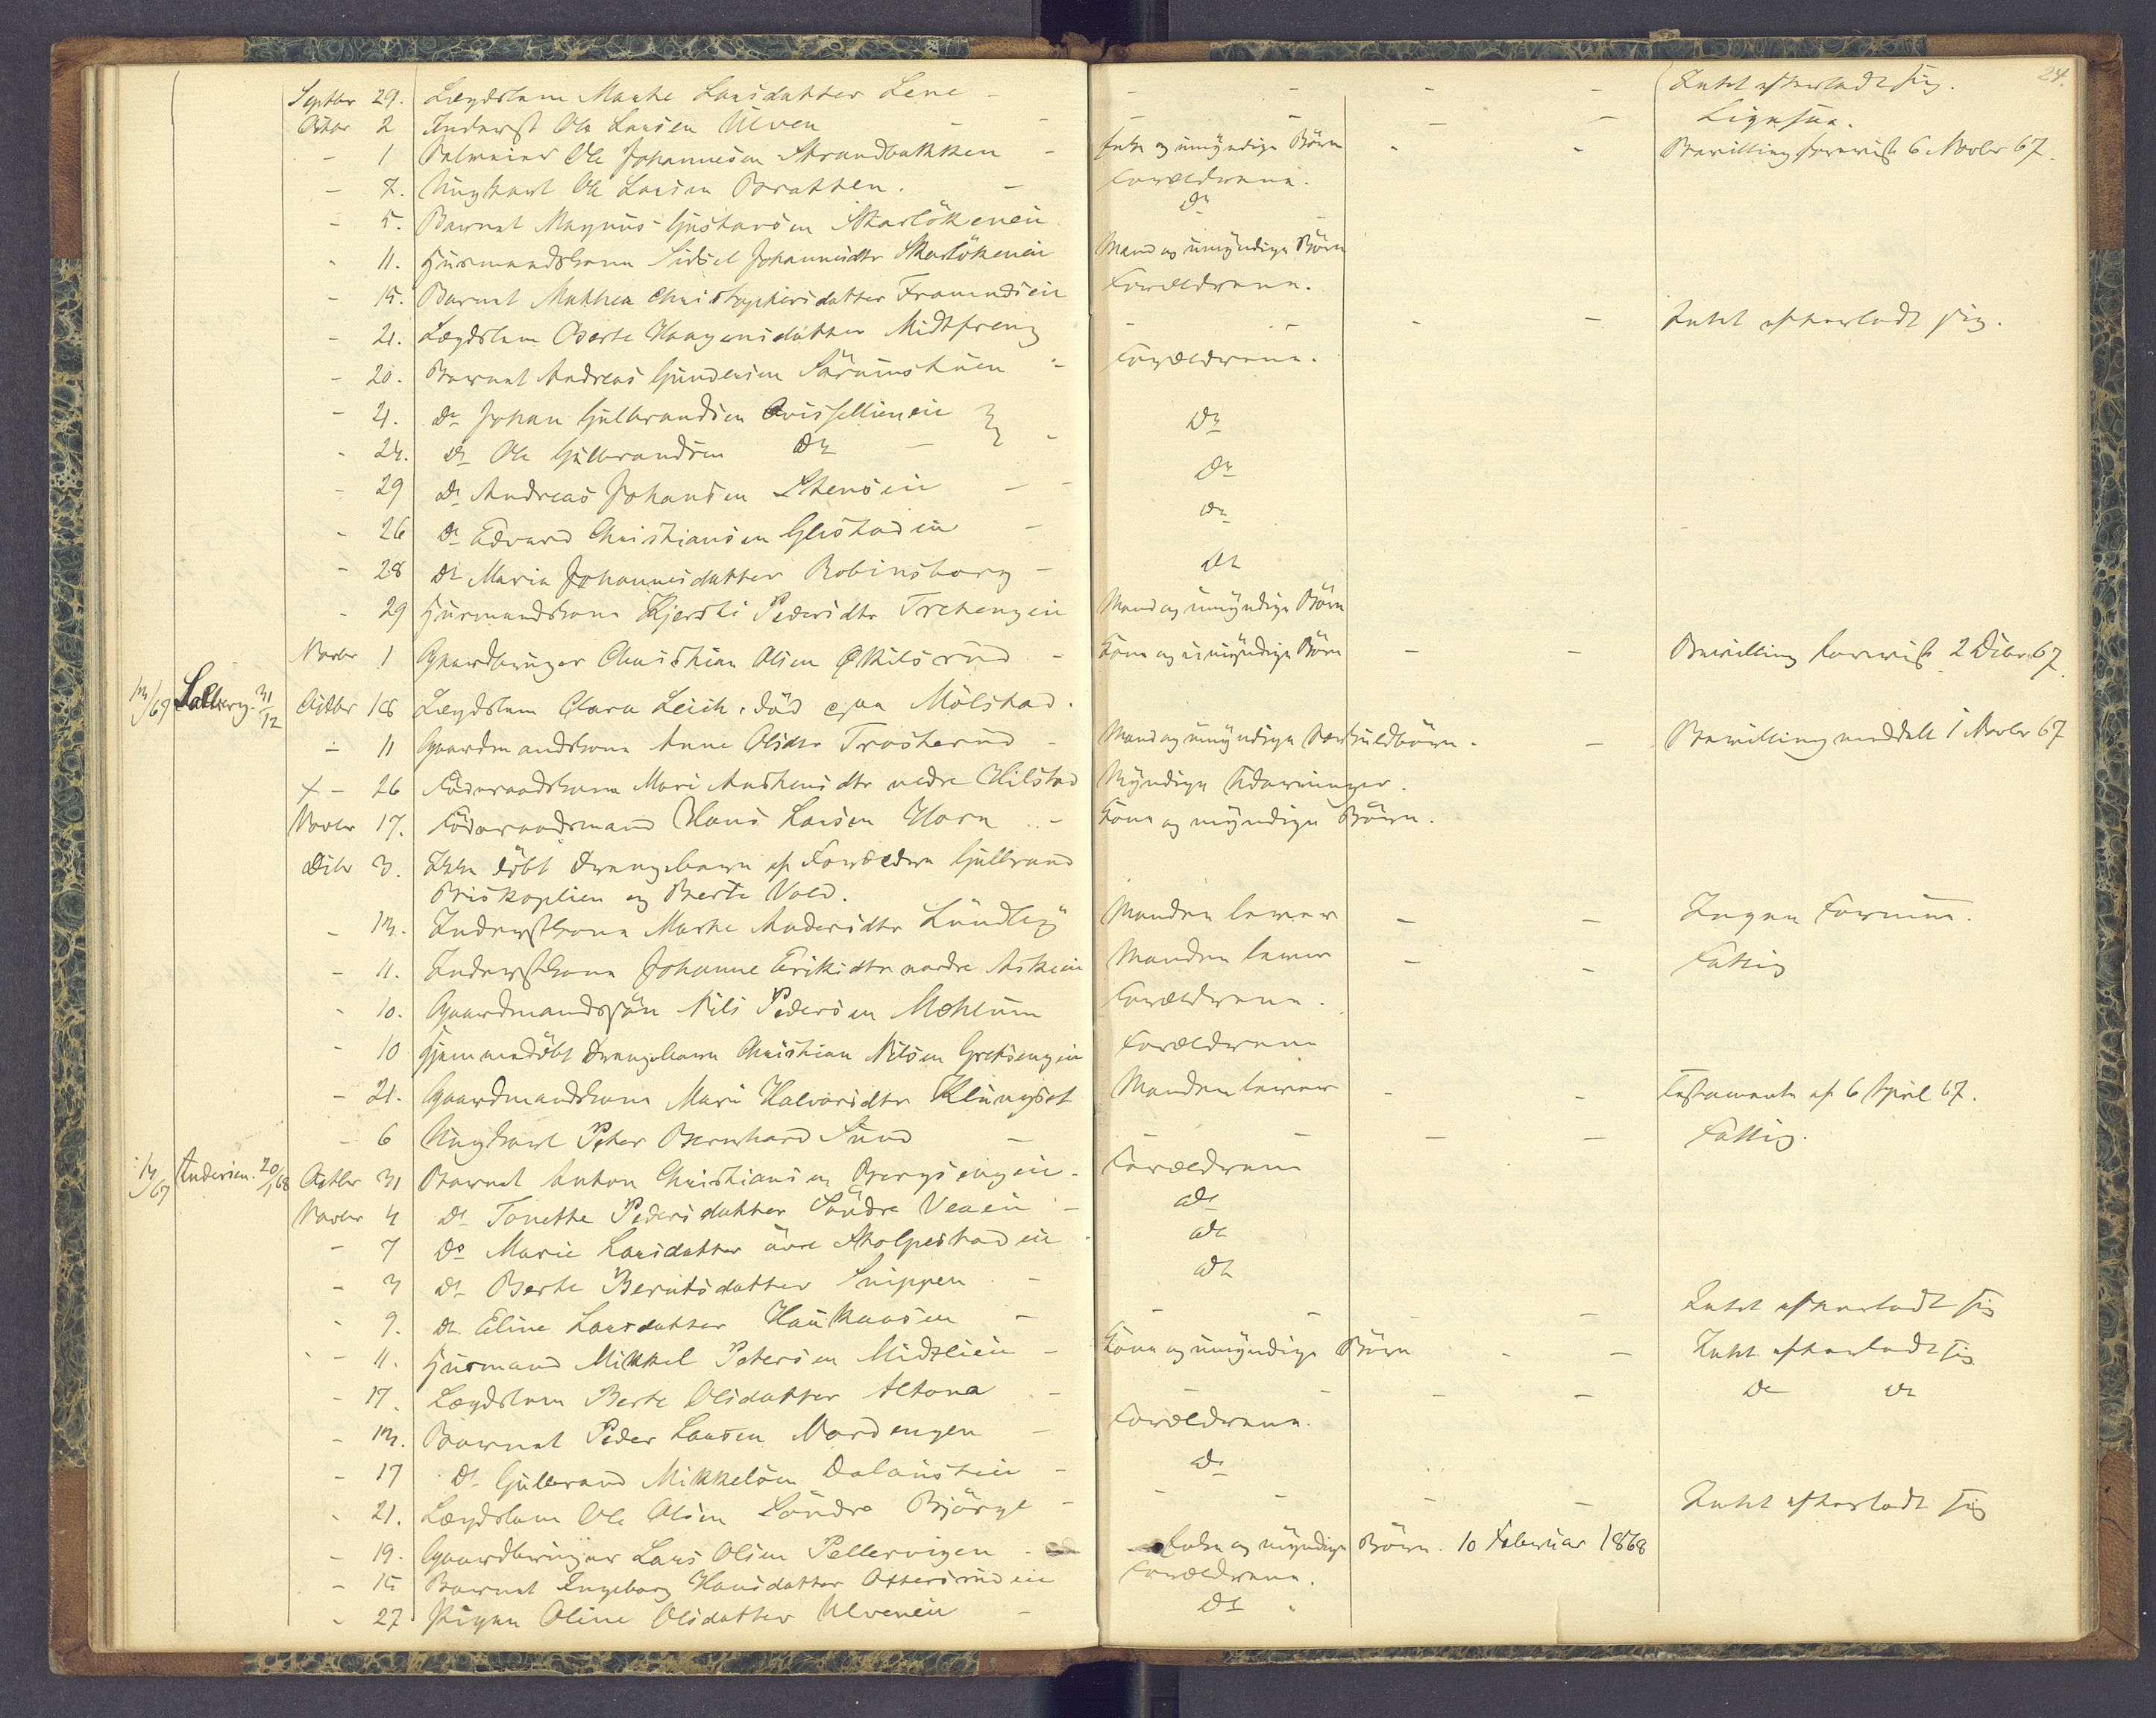 24.
Septbr 29. Lægdslem Marthe Larsdatter Lene - - - - - Intet efterladt sig.
Octbr 2 Inderst Ole Larsen Ulven - - - - Ligesaa.
- 1 Palmeier Ole Johannesen Strandbakken - Enke og umyndige Börn - - Bevilling forevist 6 Novbr 67.
- 7. Ungkarl Ole Larsen Bratten. - Forældrene.
- 5. Barnet Magnus Gustavsen Skarlökeneie Do
- 11. Huusmandskone Sidsel Johannesdtr Skarlökeneie Mand og umyndige Börn
- 15. Barnet Mathea Christophersdatter Framndseie Forældrene.
- 21. Lægdslem Berte Haagensdatter Midtfreng - - - - Intet efterladt sig.
- 20. Barnet Andreas Gundersen Särumstuen - Forældrene.
- 21. Do Johan Gulbrandsen Qvisellieneie Do
- 24. Do Ole Gulbrandsen Do -
- 29 Do Andreas Johansen Stenseie - - Do
- 26 Do Edvard Christiansen Glestadeie - Do
- 28 Do Maria Johannesdatter Robinsborg - Do
- 29 Huusmandskone Kjersti Pedersdtr Tretengeie Mand og umyndige Börn
Novbr 1 Gaardbruger Christian Olsen Eskilsrud - Kone og umyndige Börn - - Bevilling forevist 2 Decbr 67.
13/69 Solberg 31/12 Octbr 18 Lægdslem Clara Leich, död paa Mölstad.
- 11 Gaardmandskone Anne Olsdtr Trosterud - Mand og umyndige Særkuldbörn. - Bevilling meddelt 1 Novbr 67
x - 26 Föderaadskone Mari Anstensdtr nedre Hilstad Myndige Udarvinger.
Novbr 17. Föderaadsmand Hans Larsen Horn - Kone og myndige Börn.
Decbr 3. Ikke döbt Drengebarn af Forældre Gulbrand
Briskoplien og Berte Vold.
- 13. Inderstkone Marthe Andersdtr Lundby Manden lever - - Ingen Formue.
- 11. Inderstkone Johanne Eriksdtr nordre Askeie Manden lever - - Fattig
- 10. Gaardmandssön Nils Pedersen Mehlum Forældrene.
- 10 Hjemmedöbt Drengebarn Christian Nilsen Gretsengeie Forældrene
- 21. Gaardmandskone Mari Halvorsdtr Klungset Manden lever - - Testamente af 6 April 67.
- 6 Ungkarl Peter Bernhard Sund - - - - - Fattig.
13/67 Andersen. 20/1 68 Octbr 31 Barnet Anton Christiansen Bergsengeie - Forældrene
Novbr 4 Do Tonette Pedersdatter Söndre Veaeie - Do
- 7 Do Marie Larsdatter övre Skolpestadeie - Do
- 3 Do Berte Berntsdatter Snippen - Do
- 9. Do Eline Larsdatter Haukaasen - - - - Intet efterladt sig
- 11. Huusmand Mikkel Petersen Midtlien - Kone og umyndige Börn - - Intet efterladt sig
- 17. Lægdslem Berte Olsdatter Altona - - - - - Do Do
- 13. Barnet Peder Larsen Nordengen - Forældrene.
- 17 Do Gulbrand Mikkelsen Dalaustuen - Do
- 21. Lægdslem Ole Olsen Söndre Björge - - - - - Intet efterladt sig
- 19. Gaardbruger Lars Olsen Pellervigen - Enke og myndige Börn. 10 Februar 1868
- 15 Barnet Ingeborg Hansdatter Ottersrudeie Forældrene.
- 27. Pigen Oline Olsdatter Ulveneie - Do